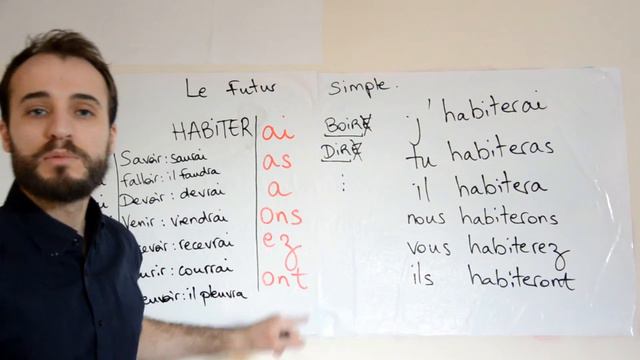 Le futur simple.
HABITER
Savoir : saurai
Falloir : il faudra
Devoir : devrai
Venir : viendrai
evoir : recevrai
urir : courrai
euvoir : il pleuvra
ai
as
a
ons
ez
ont
BOIRE
DIRE
⋮
j'habiterai
tu habiteras
il habitera
nous habiterons
vous habiterez
ils habiteront